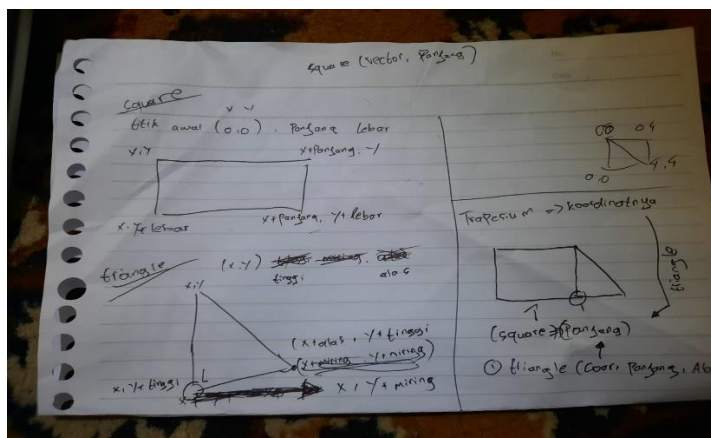 square (vector, Panjang)
square
x y
titik awal (0.0). Panjang lebar
x,y
x+Panjang, y
x, y+lebar
x+panjang, y+lebar
triangle
(x.y)
tinggi
alas
x,y
(x+alas, y+tinggi
(x+miring, y+miring)
x, y+tinggi
x, y+miring
00
04
0.0
4.4
Trapesium => koordinatnya
(square => Panjang)
triangle (Coor, Panjang, Al